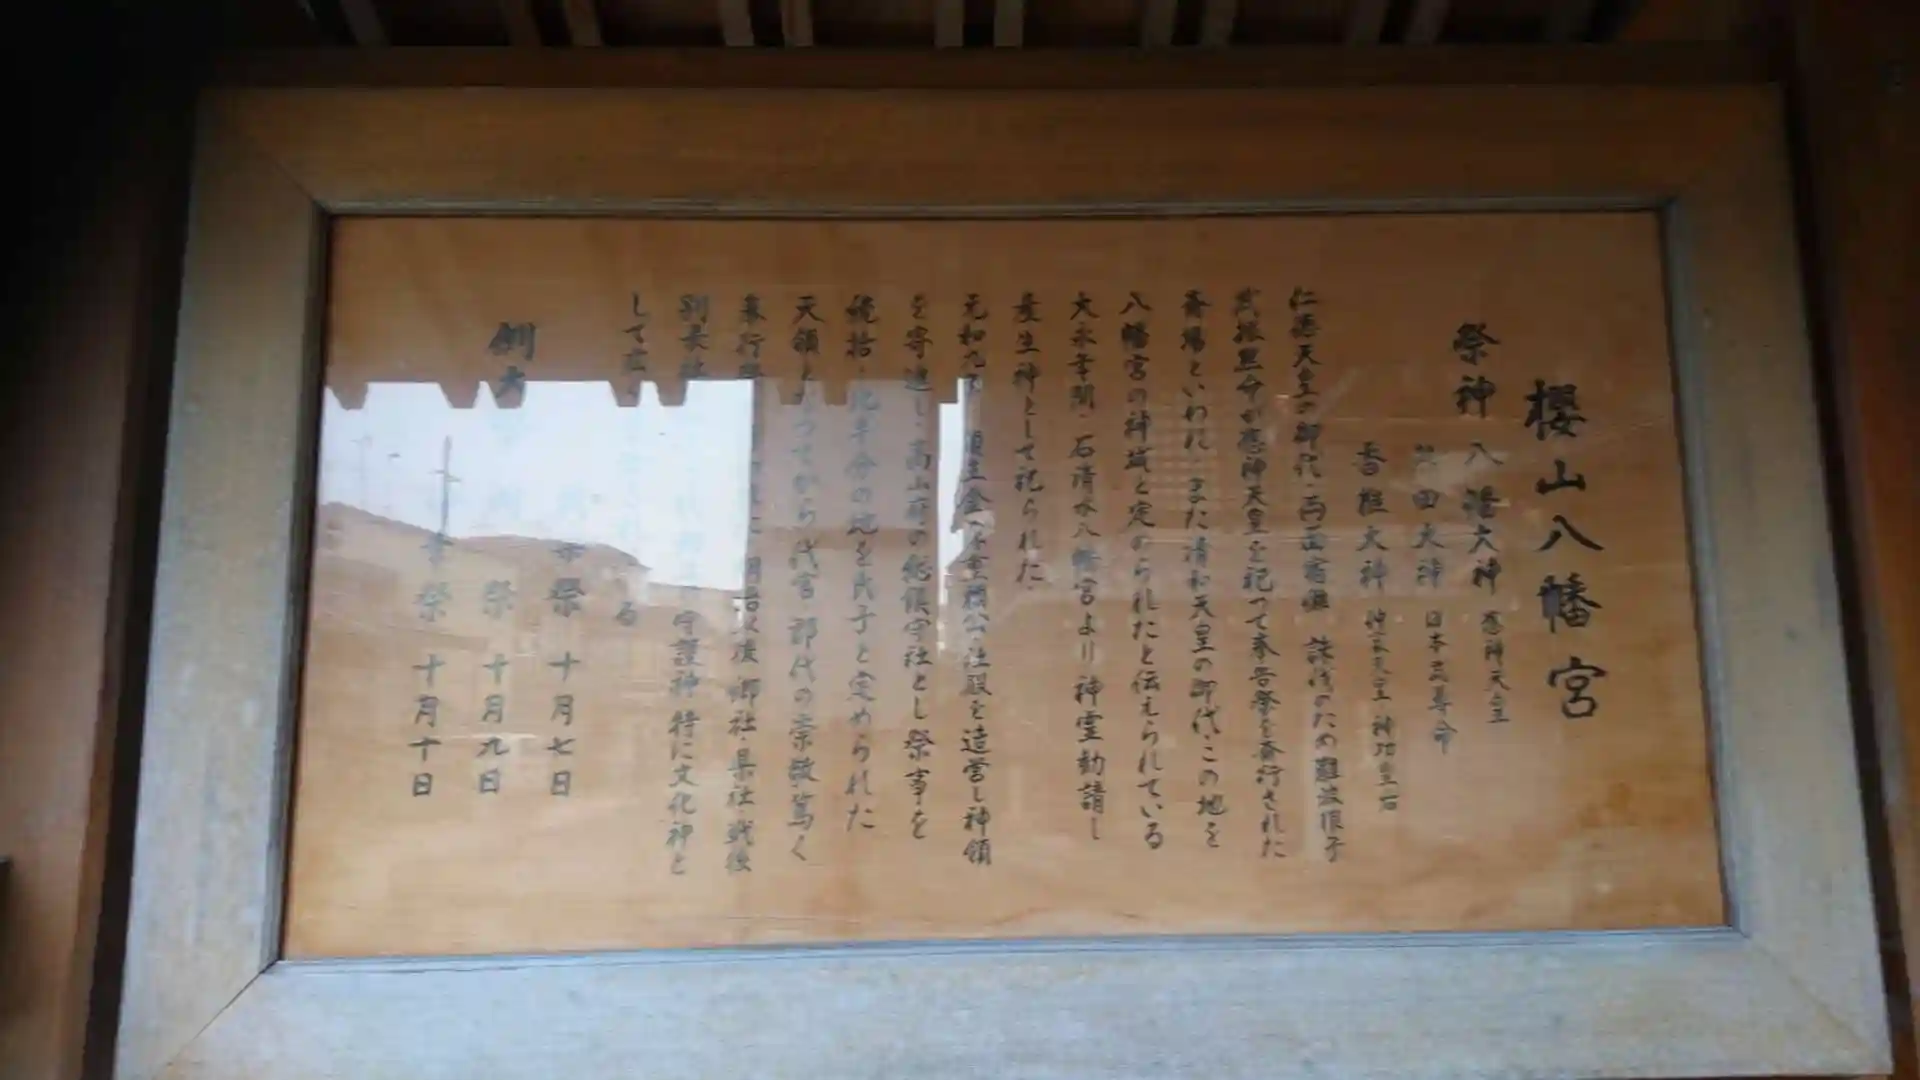 櫻山八幡宮
祭神 八幡大神 應神天皇
熱田大神 日本武尊命
香椎大神 神宗天皇 神功皇后
仁徳天皇の御代、両面宿儺 誅伐のため難波根子
武振熊命が應神天皇を祀って奉告祭を斎行された
斎場といわれ、また清和天皇の御代、この地を
八幡宮の神域と定められたと伝えられている
大永年間、石清水八幡宮より神霊勧請し
産生神として祀られた、
元和九 領主金 重頼公社殿を造営し神領
を寄進し、高山府の総鎮守社とし祭事を
総括、北半分の地を氏子と定められた
天領となってから代官 郡代の崇敬篤く
奉行 明治以後 郷社 県社 戦後
別表 守護神 特に文化神と
して る
例大
祭 十月七日
祭 十月九日
幸祭 十月十日